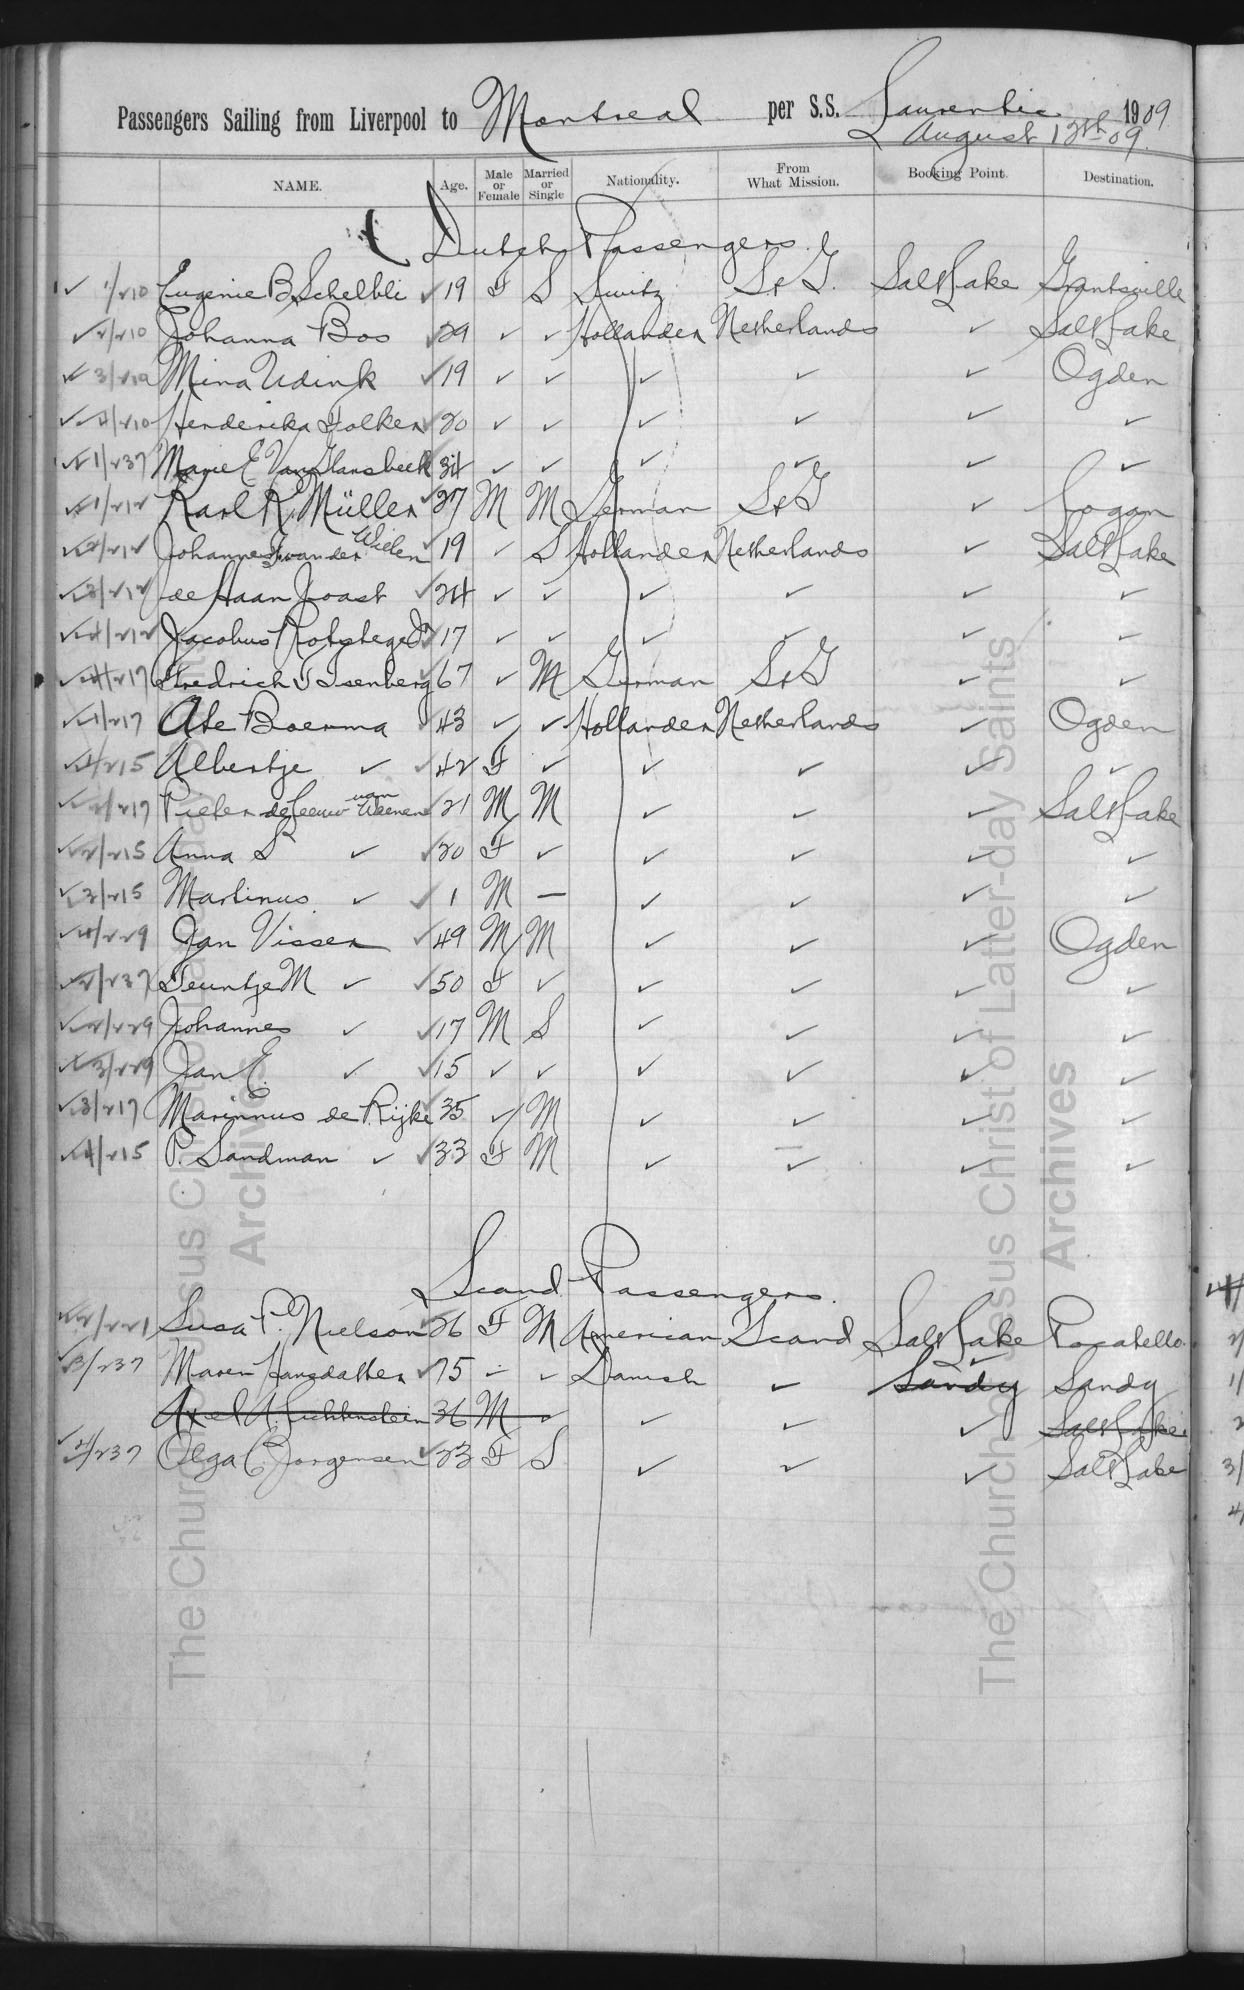 Passengers Sailing from Liverpool to Montreal per S.S. Laurentic 1909
August 12th 09.
NAME. Age. Male or Female Married or Single Nationality. From What Mission. Booking Point. Destination.
Dutch Passengers.
✓ 1/210 Eugenie B Schelbli ✓ 19 F S Switz S & G. Salt Lake Grantsville
✓ 2/210 Johanna Bos ✓ 29 ✓ ✓ Hollander Netherlands ✓ Salt Lake
✓ 3/210 Mina Udink ✓ 19 ✓ ✓ ✓ ✓ ✓ Ogden
✓ 4/210 Henderika Folker ✓ 20 ✓ ✓ ✓ ✓ ✓ ✓
✓ 1/237 Marie E Van Glansbeek 34 ✓ ✓ ✓ ✓ ✓ ✓
✓ 1/212 Karl R. Müller ✓ 27 M M German S & G ✓ Logan
✓ 2/212 Johannes van der Wielen ✓ 19 ✓ S Hollander Netherlands ✓ Salt Lake
✓ 3/212 de Haan Joast ✓ 24 ✓ ✓ ✓ ✓ ✓ ✓
✓ 4/212 Jacobus ✓ 17 ✓ ✓ ✓ ✓ ✓ ✓
✓ 4/217 Fredrich F Isenberg 67 ✓ M German S & G ✓ ✓
✓ 1/217 Ate Boerma ✓ 43 ✓ ✓ Hollander Netherlands ✓ Ogden
✓ 1/215 Albertje ✓ ✓ 42 F ✓ ✓ ✓ ✓ ✓
✓ 2/217 Pieter de Leeuw van Weenen 21 M M ✓ ✓ ✓ Salt Lake
✓ 2/215 Anna S ✓ ✓ 20 F ✓ ✓ ✓ ✓ ✓
✓ 3/215 Martinus ✓ ✓ 1 M — ✓ ✓ ✓ ✓
✓ 4/229 Jan Visser ✓ 49 M M ✓ ✓ ✓ Ogden
✓ 2/237 Teuntje M ✓ ✓ 50 F ✓ ✓ ✓ ✓ ✓
✓ 2/229 Johannes ✓ ✓ 17 M S ✓ ✓ ✓ ✓
✓ 3/229 Jan E. ✓ ✓ 15 ✓ ✓ ✓ ✓ ✓ ✓
✓ 3/217 Marinnus de Rijke 35 ✓ M ✓ ✓ ✓ ✓
✓ 4/215 P. Sandman ✓ ✓ 33 F M ✓ ✓ ✓ ✓
Scand Passengers.
✓ 2/221 Susa P. Nielson ✓ 26 F M American Scand Salt Lake Pocatello.
✓ 3/237 Maren Hansdatter ✓ 75 ✓ ✓ Danish ✓ Sandy ✓ Sandy
Axel A. Lichtenstein 36 M ✓ ✓ ✓ ✓ Salt Lake
✓ 4/237 Olga C. Jorgensen ✓ 23 F S ✓ ✓ ✓ Salt Lake
The Church of Jesus Christ of Latter-day Saints
Archives
The Church of Jesus Christ of Latter-day Saints
Archives